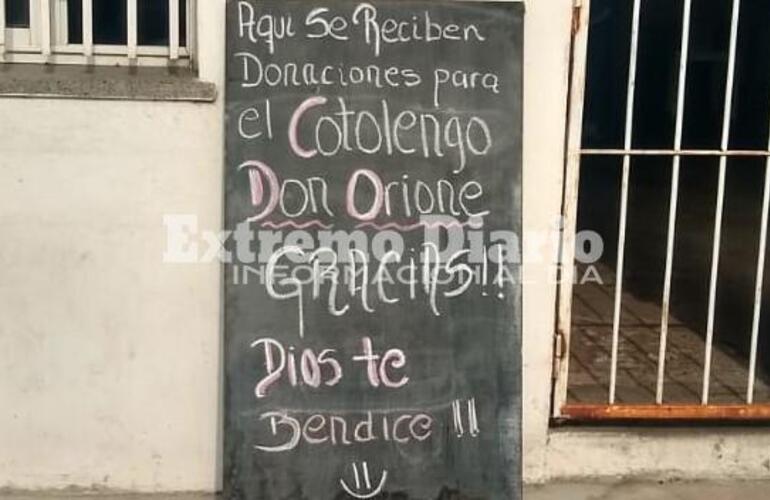 Aqui Se Reciben
Donaciones para
el Cotolengo
Don Orione
GRACIAS!!
Dios te
Bendice !!
Extremo Diario
INFORMACION AL DIA